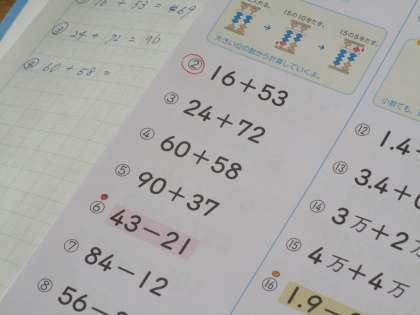 ② 16 + 53 = 69
③ 24 + 72 = 96
④ 60 + 58 =
15の10をたす。
15の5をたす。
大きい位の数から計算していくよ。
② 16+53
③ 24+72
④ 60+58
⑤ 90+37
⑥ 43−21
⑦ 84−12
⑧ 56−
⑫ 1.4
⑬ 3.4+
⑭ 3万+2
⑮ 4万+4万
⑯ 1.9−
小数でも、